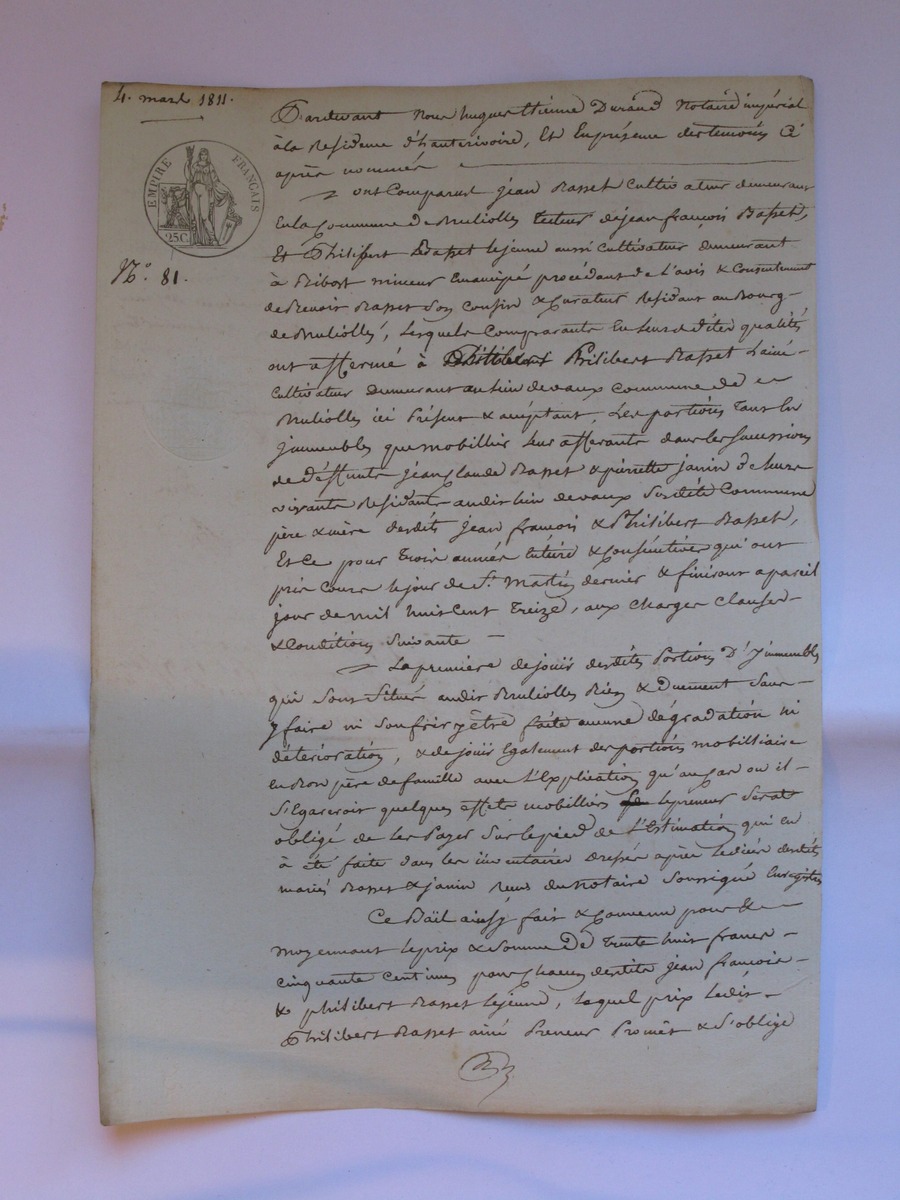 4. mars 1811.
EMPIRE FRANÇAIS
25C
N.° 81.
Pardevant Nous hugues Etienne Durand Notaire impérial
à la Residence d'hauterivoire, Et En présence des temoins Ci
après nommés
ont Comparus jean Basset Cultivateur demeurant
En la Commune de Brullolles tuteur de jean françois Basset,
Et Philibert Basset lejeune aussi Cultivateur demeurant
à Ribost mineur Emancipé procédant de l'avis & Consentement
de Benoir Basset son Cousin & Curateur Résidant au Bourg
de Brullolles, lesquels Comparants En leurs dites qualités
ont affermé à Philibert Basset L'ainé
Cultivateur demeurant au lieu de vaux Commune de
Brullolles ici Présent & acceptant, Les portions tant En
jmmeubles que mobillier leur afférante dans les successions
de déffunts jean Claude Basset & pierrette janin de leurs
vivants Résidants audit lieu de vaux susdite Commune
père & mère desdits jean francois & Philibert Basset,
Et Ce pour trois années Entière & Consécutives qui ont
pris Cours le jour de St. Martin dernier & finiront a pareil
jour de mil huit Cent treize, aux charges Clauses
& Conditions Suivante
La première de jouir desdites Portions D'jmmeubles
qui sont Situés audit Brullolles Bien & Duement Sans
y faire ni souffrir y être faite aucune dégradation ni
détérioration, & de jouir Egalement des portions mobilliaire
En Bon père de famille avec l'Explication qu'au Cas ou il
S'Egareroit quelques effets mobilliers le preneur Serat
obligé de les Payer Sur le pied de l'Estimation qui en
à été faite dans les inventaires dressés après le décès desdits
mariés Basset & janin Reçus du Notaire Soussigné Enregistrés
Ce Bail ainsy fait & Convenu pour &
moyennant le prix & Somme de trente huit francs
cinquante centimes pour chacun desdits jean francois
& philibert Basset lejeune, laquel prix ledit
Philibert Basset ainé Preneur Promet & s'oblige